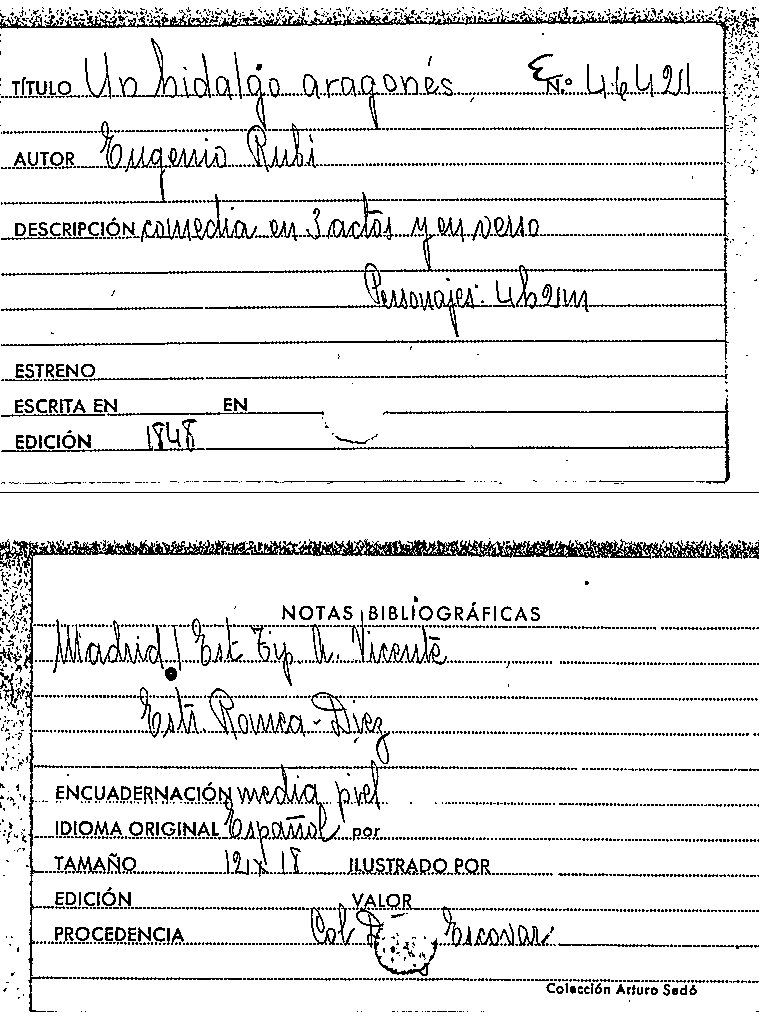 TÍTULO Un hidalgo aragonés N.º 46421
AUTOR Eugenio Rubi
DESCRIPCIÓN comedia en 3 actos y en verso
Personajes: 4h2m
ESTRENO
ESCRITA EN EN
EDICIÓN 1848
NOTAS BIBLIOGRÁFICAS
Madrid / Est Tip A. Vicente
Estr. Romea-Diez
ENCUADERNACIÓN media piel
IDIOMA ORIGINAL Español por
TAMAÑO 12x18 ILUSTRADO POR
EDICIÓN VALOR
PROCEDENCIA Col Escovar
Colección Arturo Sedó